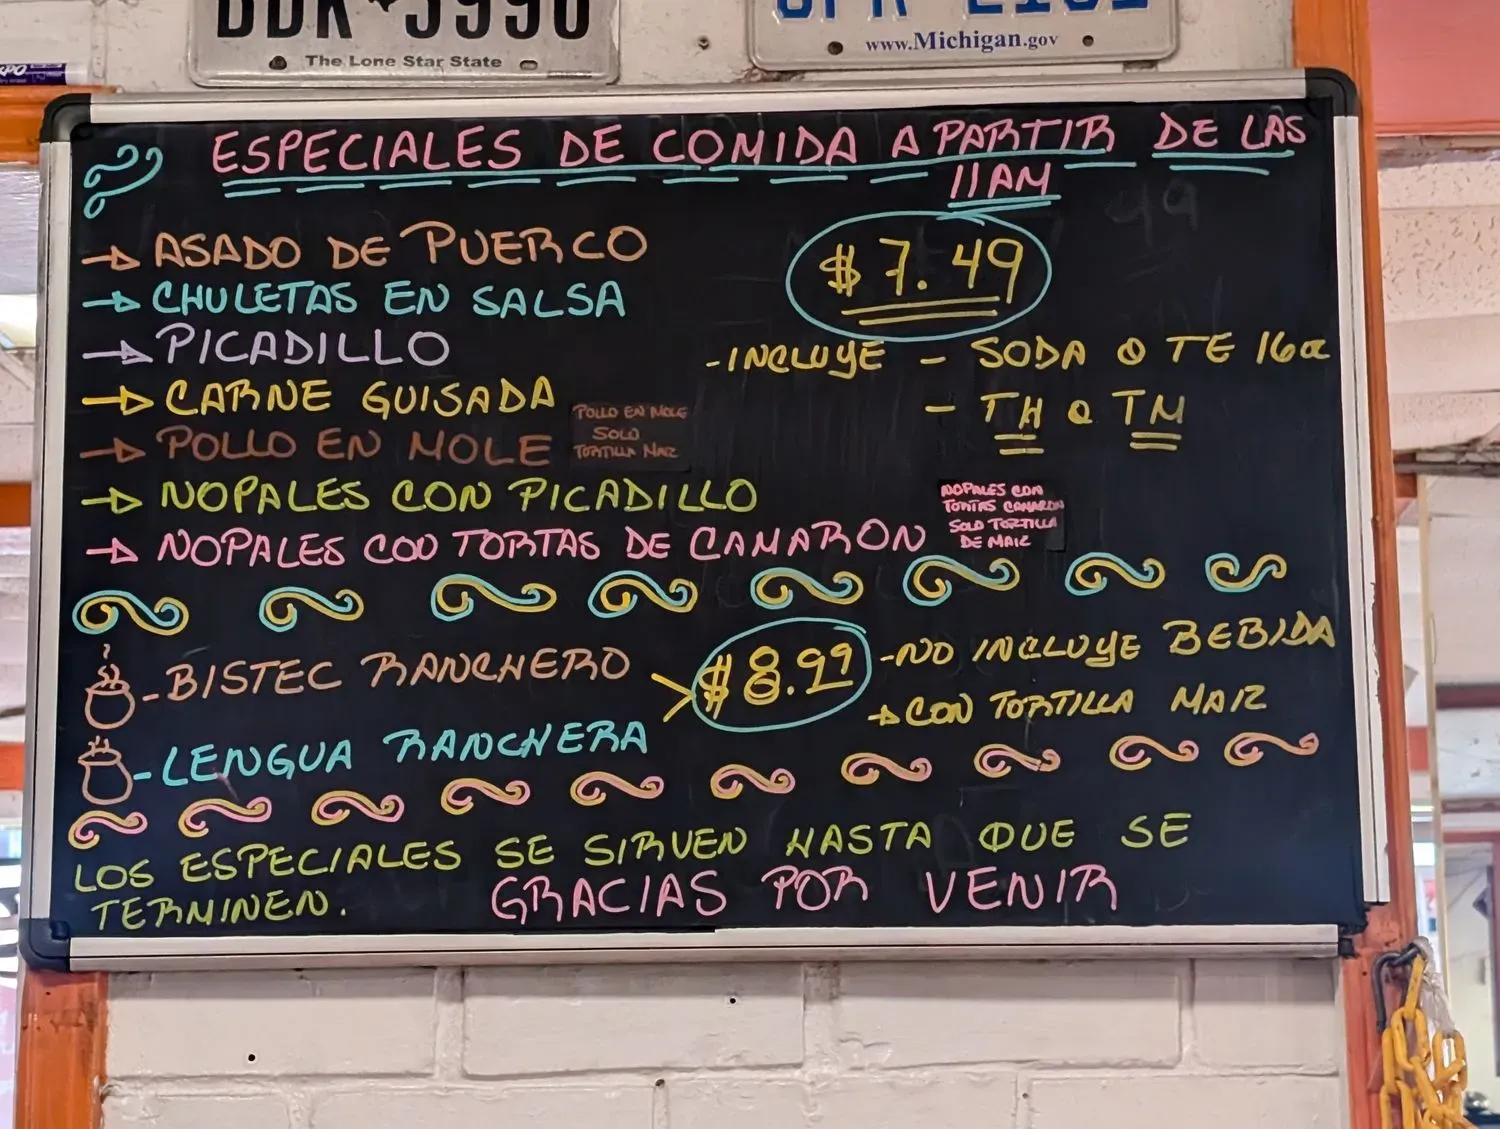 The Lone Star State
www.Michigan.gov
ESPECIALES DE COMIDA A PARTIR DE LAS
11 AM
→ ASADO DE PUERCO
→ CHULETAS EN SALSA
→ PICADILLO
→ CARNE GUISADA
→ POLLO EN MOLE
POLLO EN MOLE
SOLO
TORTILLA MAIZ
→ NOPALES CON PICADILLO
→ NOPALES CON TORTAS DE CAMARON
NOPALES CON
TORTAS CAMARON
SOLO TORTILLA
DE MAIZ
$7.49
-INCLUYE - SODA O TE 16oz
- TH O TM
-BISTEC RANCHERO
-LENGUA RANCHERA
> $8.99
-NO INCLUYE BEBIDA
→ CON TORTILLA MAIZ
LOS ESPECIALES SE SIRVEN HASTA QUE SE
TERMINEN.
GRACIAS POR VENIR